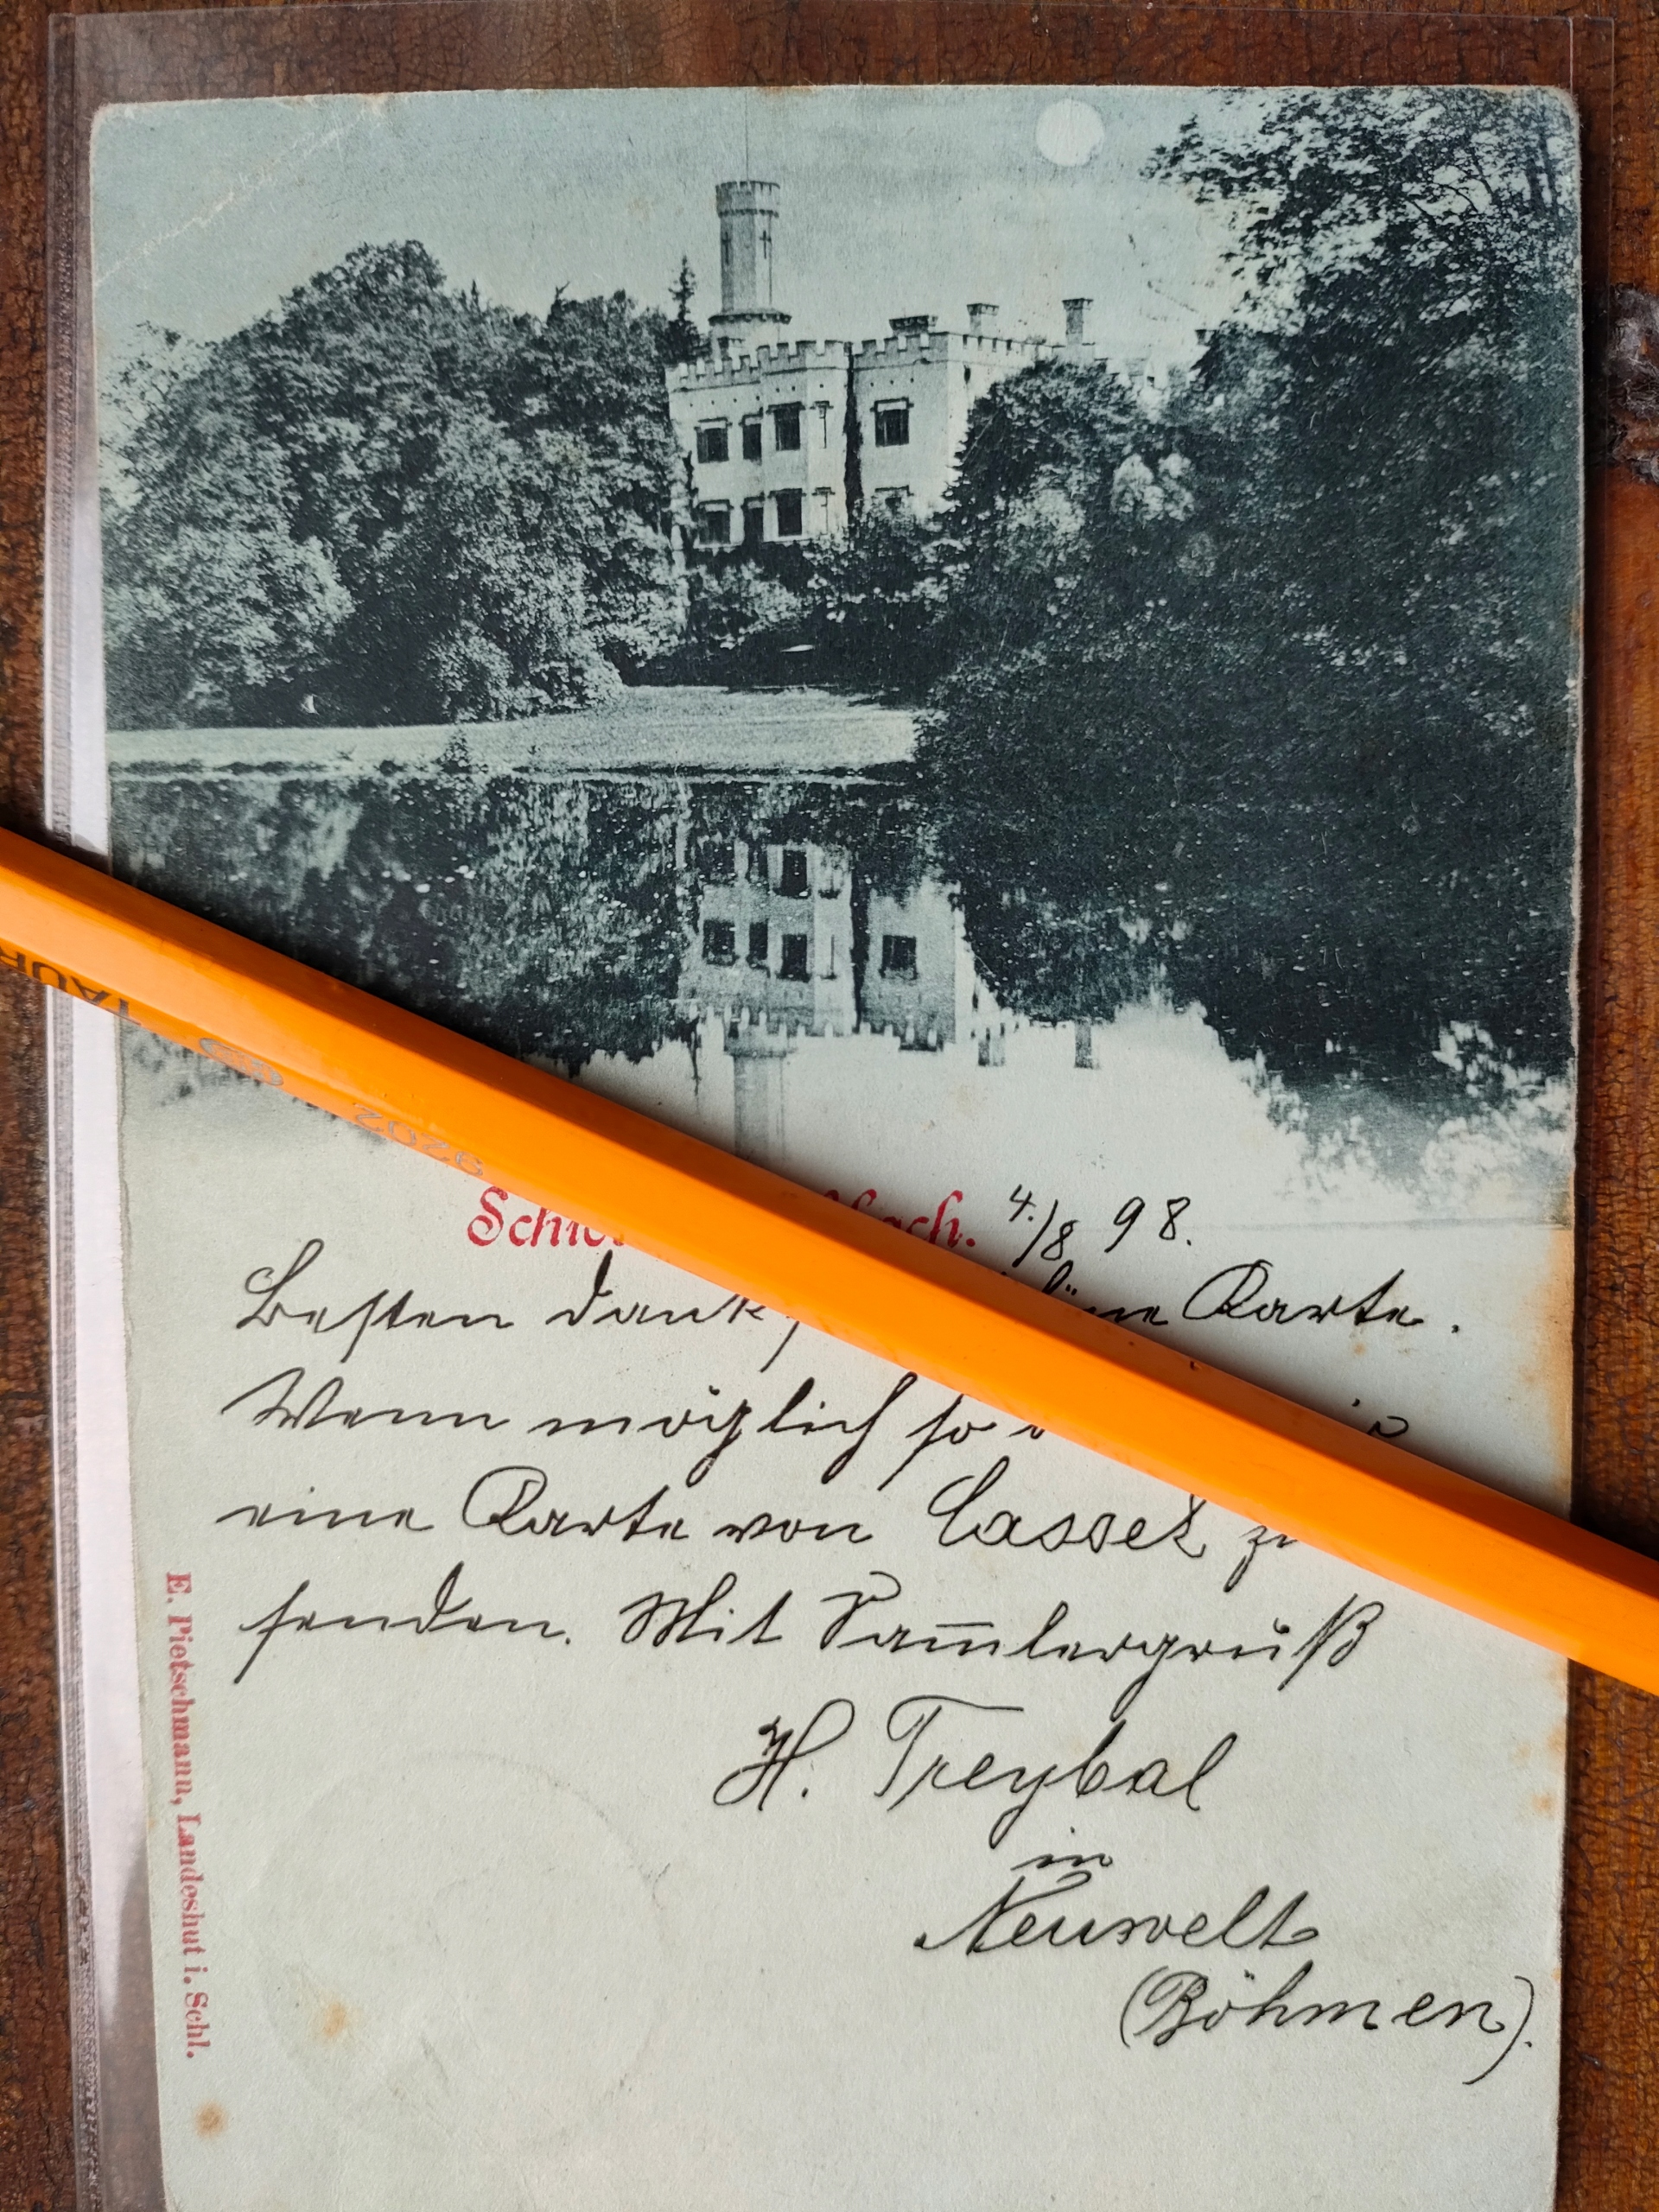 4./8 98.
Besten Dank Karte.
Wenn möglich so
eine Karte von Cassel zu
senden. Mit Sam̄lergruß
H. Treybal
in
Neuwelt
(Böhmen).
E. Pietschmann, Landeshut i. Schl.
2029